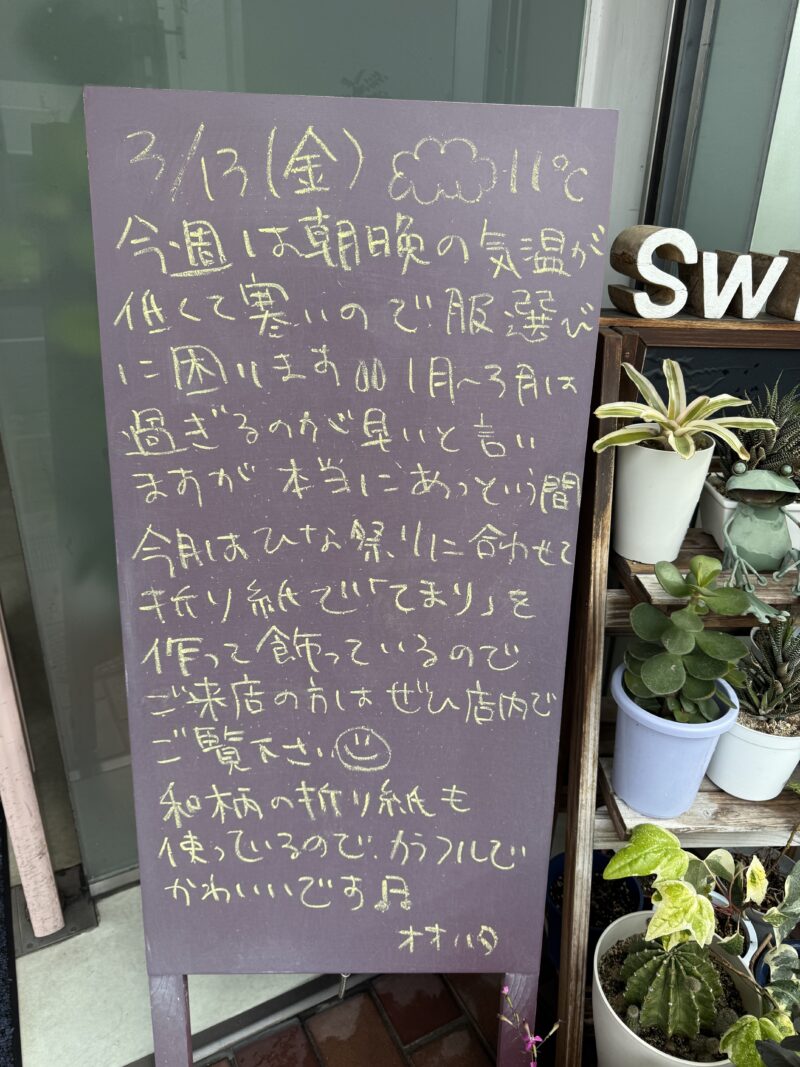 3/13(金) 11℃
今週は朝晩の気温が
低くて寒いので服選び
に困ります 1月〜3月は
過ぎるのが早いと言い
ますが 本当にあっという間
今月はひな祭りに合わせて
折り紙で「てまり」を
作って飾っているので
ご来店の方はぜひ店内で
ご覧下さい
和柄の折り紙も
使っているので、カラフルで
かわいいです♫
オオハタ
SW